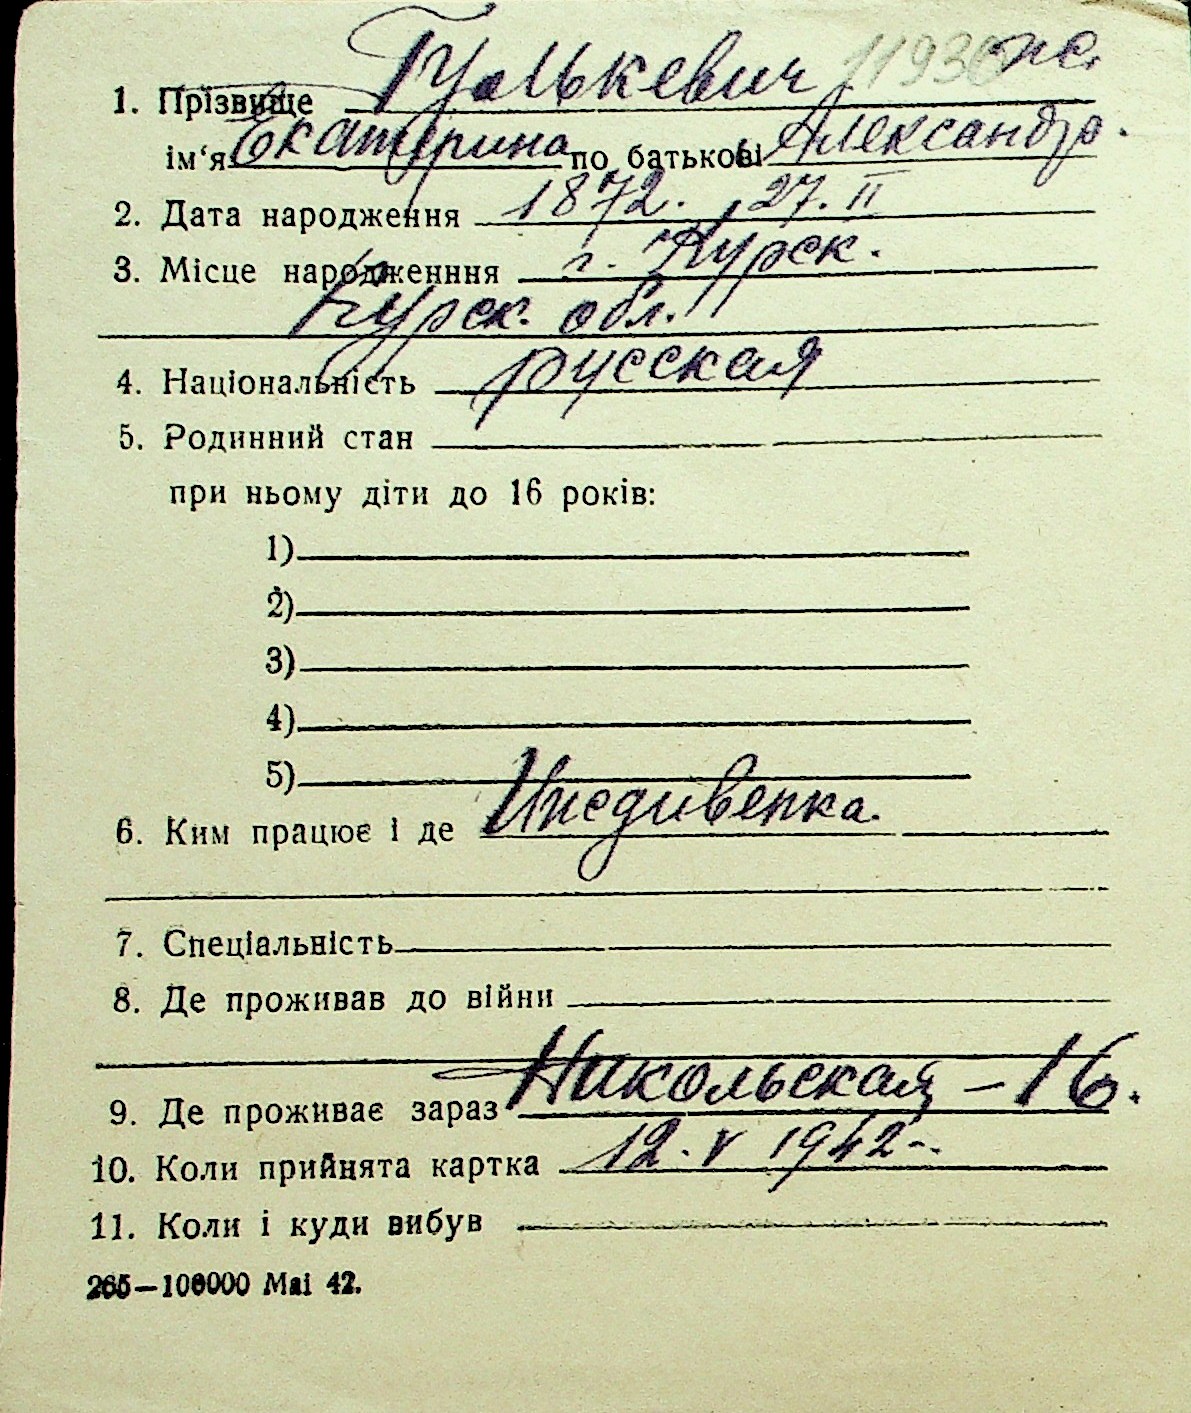 1. Прізвище Гулькевич 11936 ж.
ім‘я Екатерина по батькові Александр.
2. Дата народження 1872. 27. II
3. Місце народженння г. Курск.
Курск. обл.
4. Національність русская
5. Родинний стан
при ньому діти до 16 років:
1)
2)
3)
4)
5)
6. Ким працює і де Иждивенка.
7. Спеціальність
8. Де проживав до війни
9. Де проживає зараз Никольская – 16.
10. Коли прийнята картка 12. V 1942
11. Коли і куди вибув
265—100000 Маі 42.